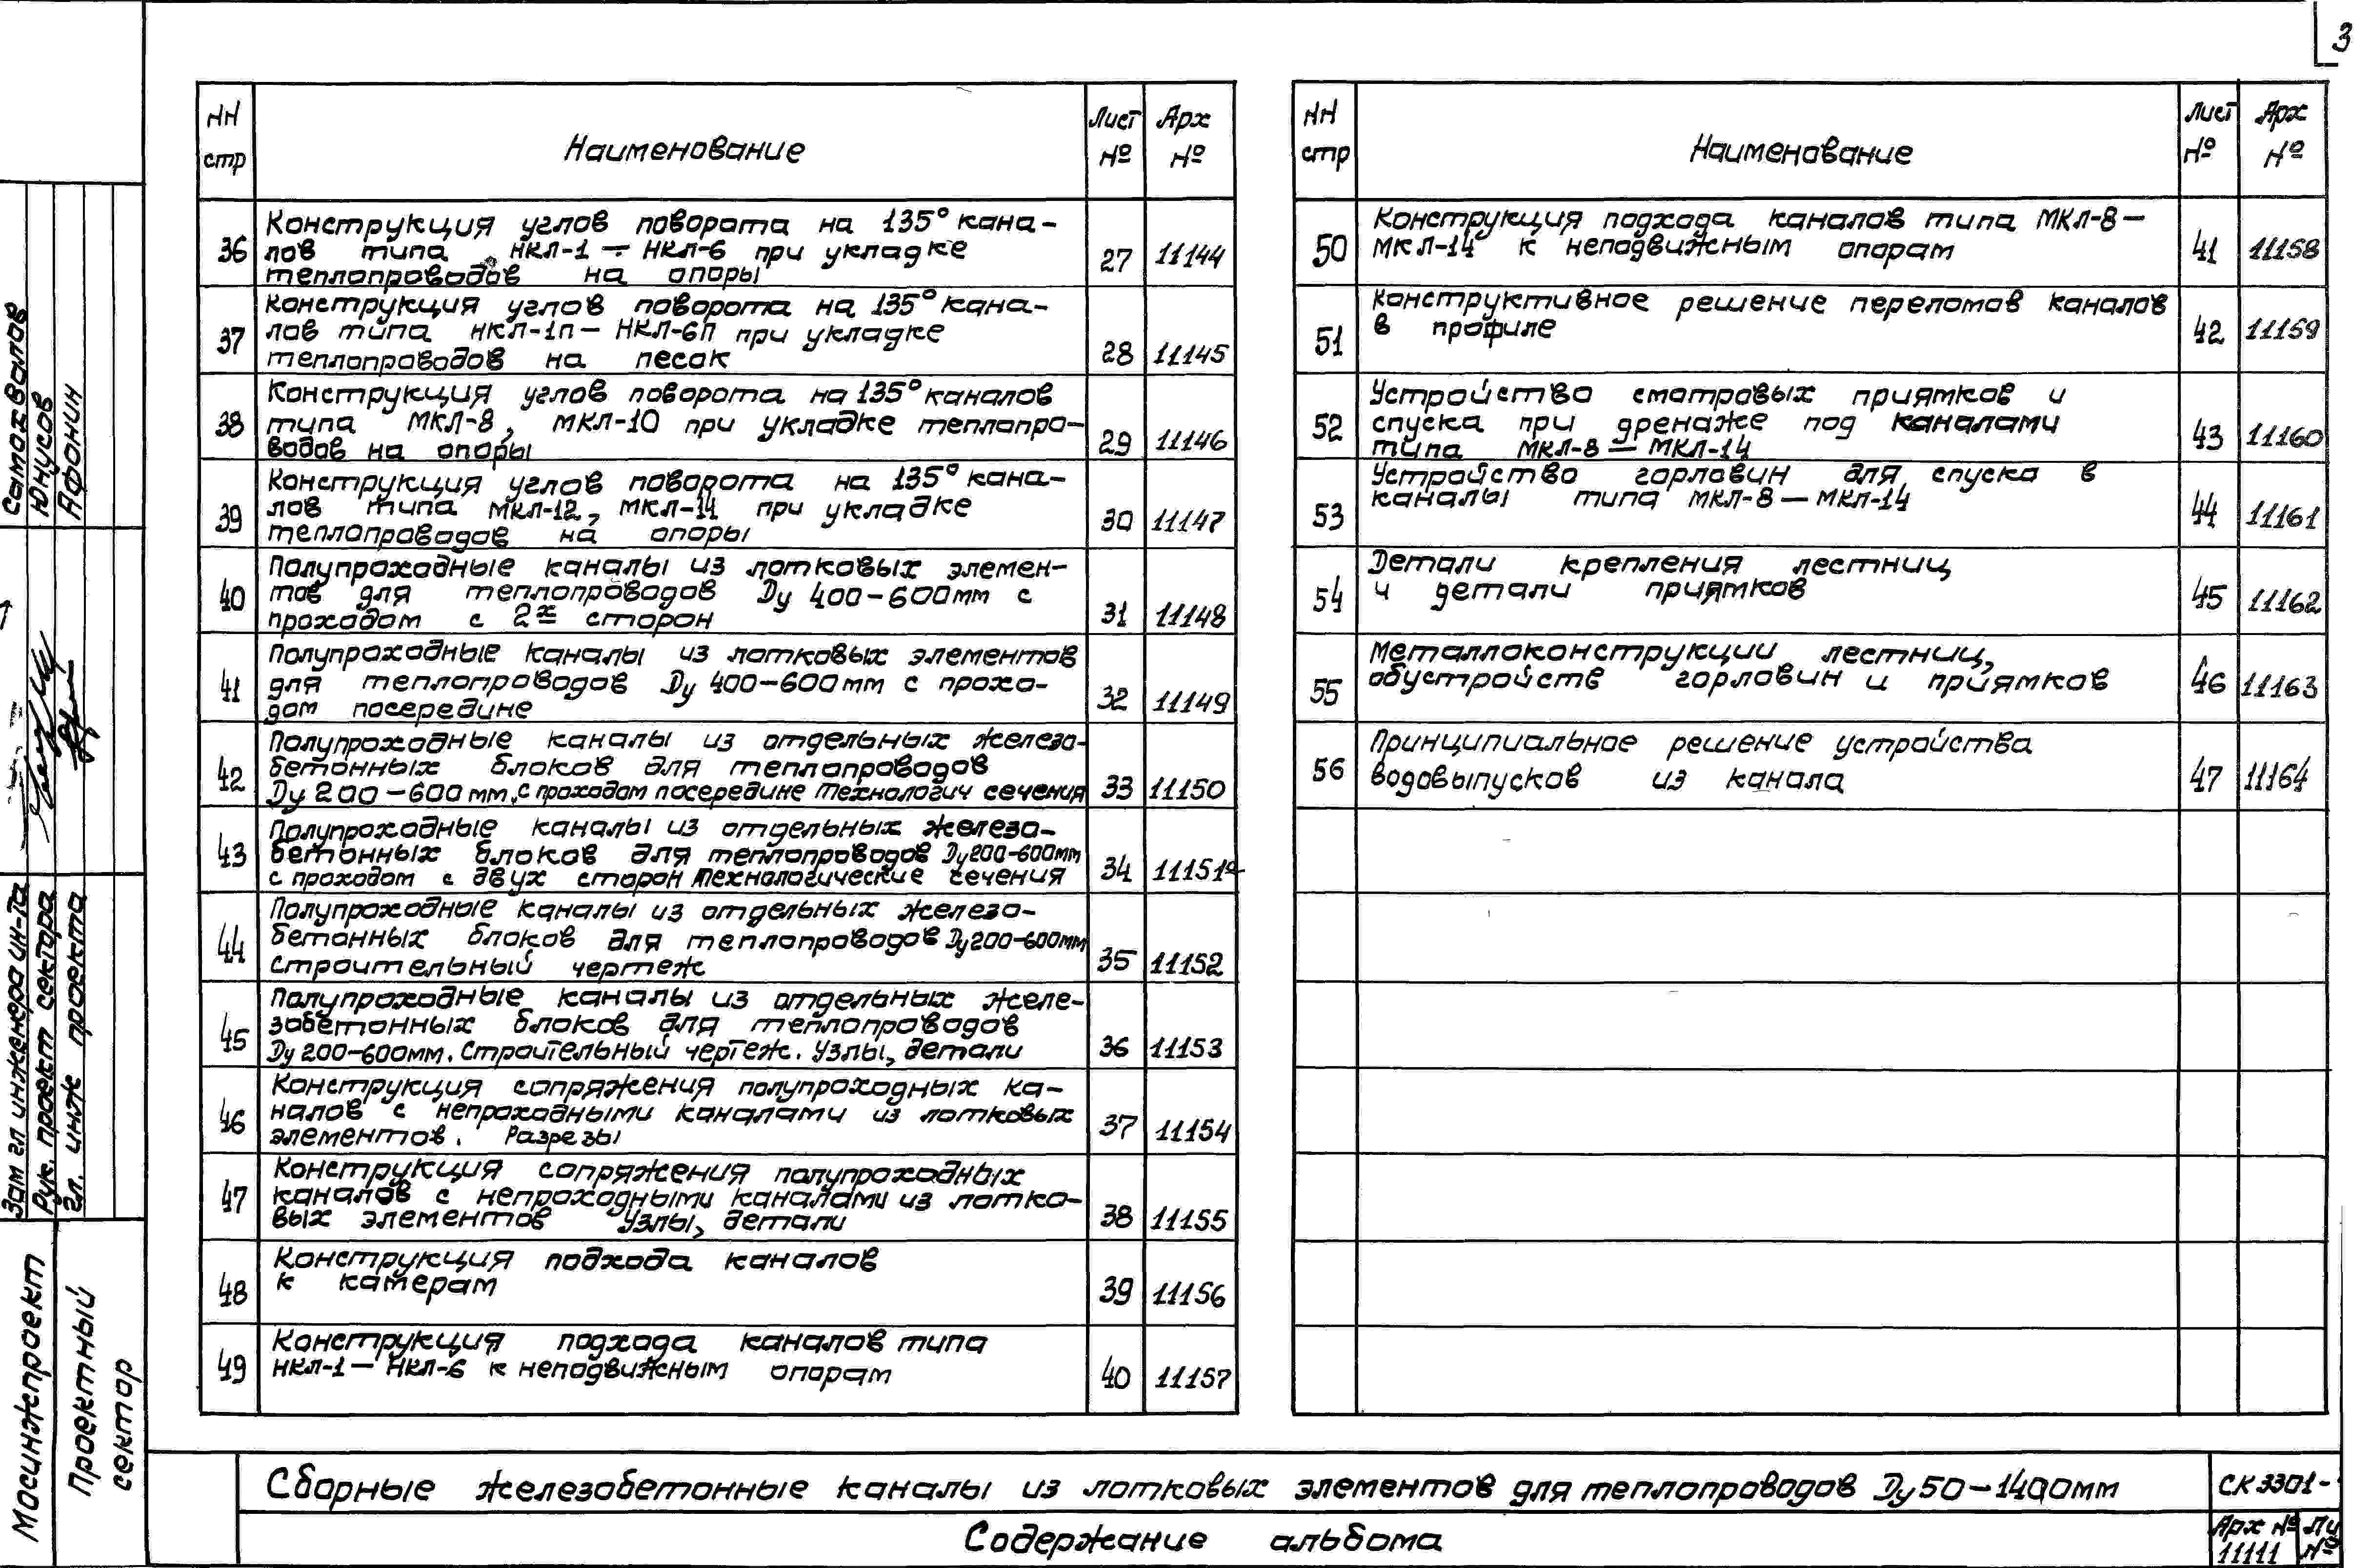 3
НН стр Наименование Лист № Арх №
36 Конструкция углов поворота на 135° кана-
лов типа НКЛ-1 ÷ НКЛ-6 при укладке
теплопроводов на опоры 27 11144
37 Конструкция углов поворота на 135° кана-
лов типа НКЛ-1п — НКЛ-6п при укладке
теплопроводов на песок 28 11145
38 Конструкция углов поворота на 135° каналов
типа МКЛ-8, МКЛ-10 при укладке теплопро-
водов на опоры 29 11146
39 Конструкция углов поворота на 135° кана-
лов типа МКЛ-12, МКЛ-14 при укладке
теплопроводов на опоры 30 11147
40 Полупроходные каналы из лотковых элемен-
тов для теплопроводов Ду 400-600мм с
проходом с 2х сторон 31 11148
41 Полупроходные каналы из лотковых элементов
для теплопроводов Ду 400-600мм с прохо-
дом посередине 32 11149
42 Полупроходные каналы из отдельных железо-
бетонных блоков для теплопроводов
Ду 200-600мм, с проходом посередине технологич сечения 33 11150
43 Полупроходные каналы из отдельных железо-
бетонных блоков для теплопроводов Ду200-600мм
с проходом с двух сторон технологические сечения 34 11151
44 Полупроходные каналы из отдельных железо-
бетонных блоков для теплопроводов Ду200-600мм
строительный чертеж 35 11152
45 Полупроходные каналы из отдельных желе-
зобетонных блоков для теплопроводов
Ду 200-600мм. Строительный чертеж. Узлы, детали 36 11153
46 Конструкция сопряжения полупроходных ка-
налов с непроходными каналами из лотковых
элементов. Разрезы 37 11154
47 Конструкция сопряжения полупроходных
каналов с непроходными каналами из лотко-
вых элементов Узлы, детали 38 11155
48 Конструкция подхода каналов
к камерам 39 11156
49 Конструкция подхода каналов типа
НКЛ-1 — НКЛ-6 к неподвижным опорам 40 11157
НН стр Наименование Лист № Арх №
50 Конструкция подхода каналов типа МКЛ-8 —
МКЛ-14 к неподвижным опорам 41 11158
51 Конструктивное решение переломов каналов
в профиле 42 11159
52 Устройство смотровых приямков и
спуска при дренаже под каналами
типа МКЛ-8 — МКЛ-14 43 11160
53 Устройство горловин для спуска в
каналы типа МКЛ-8 — МКЛ-14 44 11161
54 Детали крепления лестниц
и детали приямков 45 11162
55 Металлоконструкции лестниц,
обустройств горловин и приямков 46 11163
56 Принципиальное решение устройства
водовыпусков из канала 47 11164
Самохвалов
Юнусов
Афонин
Зам гл инженера ин-та
Рук. проект сектора
Гл. инж проекта
Мосинжпроект
Проектный
сектор
Сборные железобетонные каналы из лотковых элементов для теплопроводов Ду 50-1400мм
СК 3301-
Содержание альбома
Арх №
11111
№